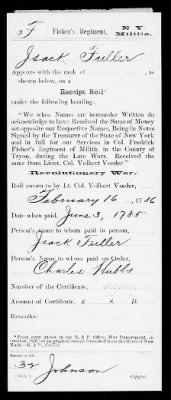 F | Fisher's Regiment, | N Y Militia.
Isack Fuller
Appears with the rank of , as
shown below, on a
Receipt Roll*
under the following heading:
"We whose Names are hereunder Written do
acknowledge to have Received the Sums of Money
set opposite our Respective Names, Being in Notes
Signed by the Treasurer of the State of New York
and in full for our Services in Col. Fredrick
Fisher's Regiment of Militia in the County of
Tryon, during the Late War. Received the
same from Lieut. Col. Volkert Veeder."
Revolutionary War.
Roll sworn to by Lt. Col. Volkert Veeder,
February 16, 1786
Date when paid, June 3, 1785
Person's name to whom paid in person,
Isack Fuller
Person's Name to whom paid on Order,
Charles Hubbs
Number of the Certificate,
Amount of Certificate, £ S D
Remarks:
Number of roll:
32 Johnson
Copyist.